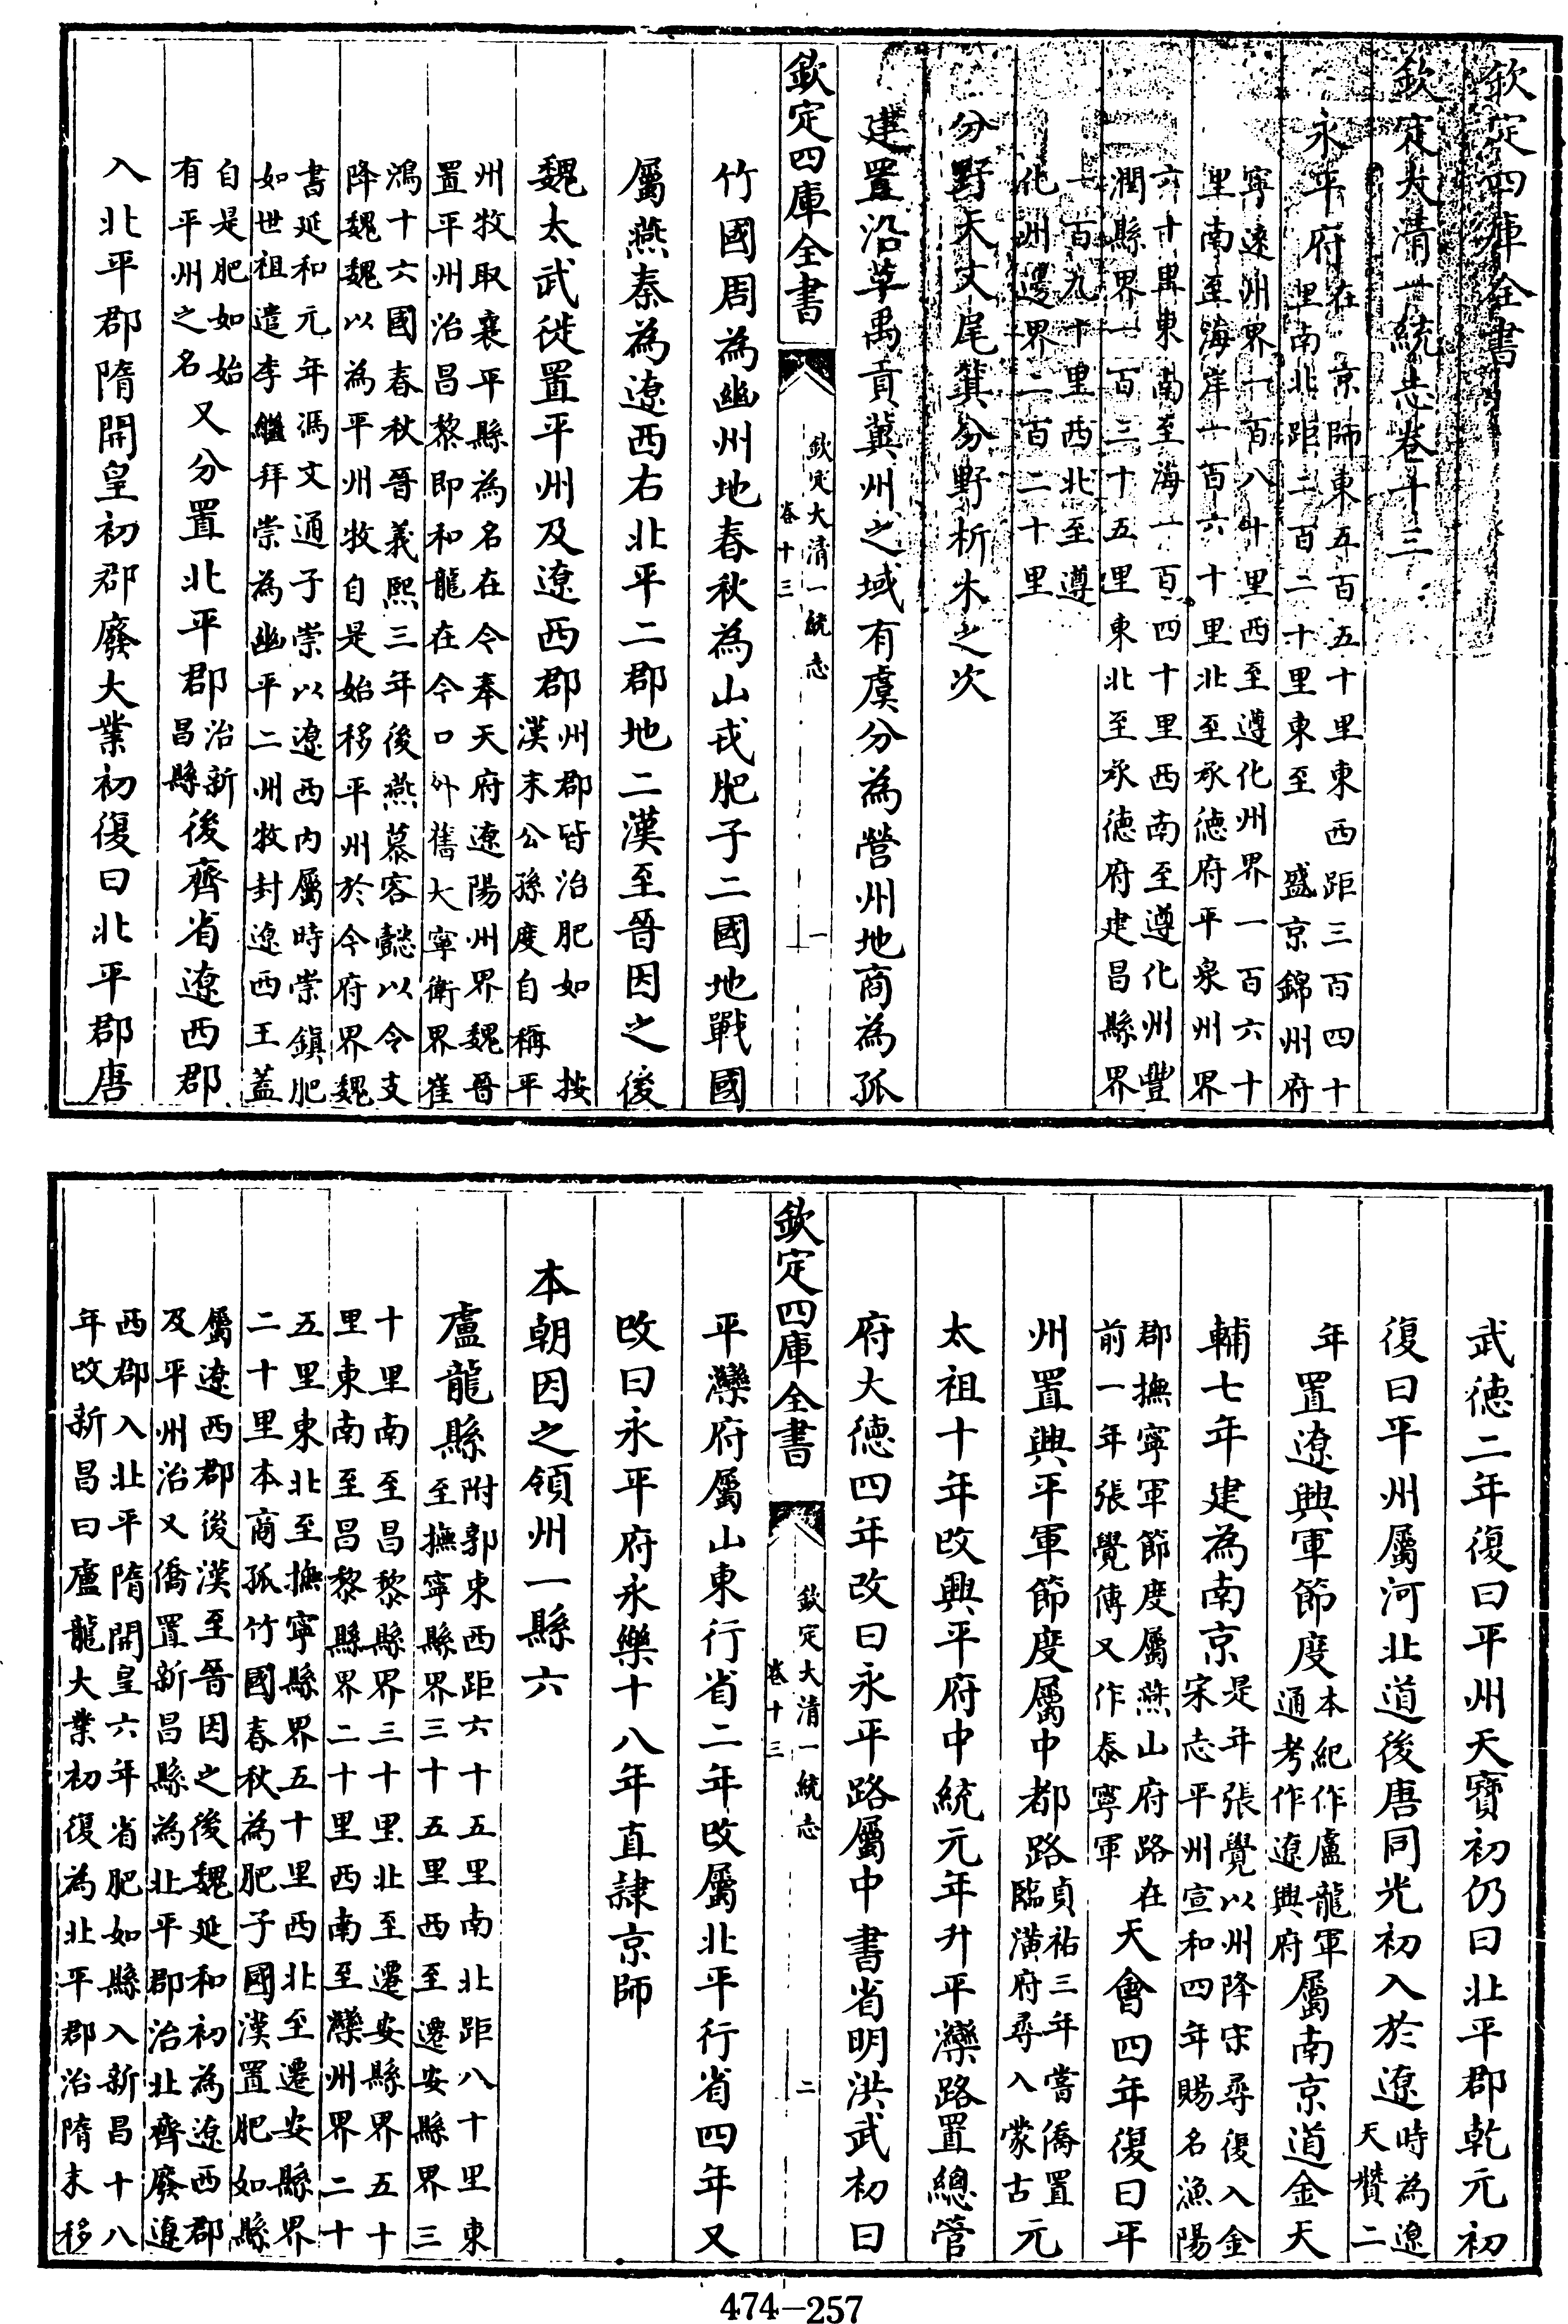 欽定四庫全書
欽定大清一統志卷十三
永平府在 京師東五百五十里東西距三百四十
里南北距二百二十里東至 盛京錦州府
寧遠州界一百八十里西至遵化州界一百六十
里南至海岸一百六十里北至承德府平泉州界
六十里東南至海一百四十里西南至遵化州豐
潤縣界一百三十五里東北至承德府建昌縣界
一百九十里西北至遵
化州邊界二百二十里
分野天文尾箕分野析木之次
建置沿革禹貢冀州之域有虞分為營州地商為孤
欽定四庫全書 欽定大清一統志 卷十三 一
竹國周為幽州地春秋為山戎肥子二國地戰國
屬燕秦為遼西右北平二郡地二漢至晉因之後
魏太武徙置平州及遼西郡州郡皆治肥如 按漢末公孫度自稱平
州牧取襄平縣為名在今奉天府遼陽州界魏晉
置平州治昌黎即和龍在今口外舊大寧衛界崔
鴻十六國春秋晉義熙三年後燕慕容懿以令支
降魏魏以為平州牧自是始移平州於今府界魏
書延和元年馮文通子崇以遼西內屬時崇鎮肥
如世祖遣李繼拜崇為幽平二州牧封遼西王蓋
自是肥如始有平州之名又分置北平郡治新昌縣後齊省遼西郡
入北平郡隋開皇初郡廢大業初復曰北平郡唐
武德二年復曰平州天寶初仍曰北平郡乾元初
復曰平州屬河北道後唐同光初入於遼時為遼天贊二
年置遼興軍節度本紀作盧龍軍通考作遼興府屬南京道金天
輔七年建為南京是年張覺以州降宋尋復入金宋志平州宣和四年賜名漁陽
郡撫寧軍節度屬燕山府路在前一年張覺傳又作泰寧軍天會四年復曰平
州置興平軍節度屬中都路貞祐三年嘗僑置臨潢府尋入蒙古元
太祖十年改興平府中統元年升平灤路置總管
府大德四年改曰永平路屬中書省明洪武初曰
欽定四庫全書 欽定大清一統志 卷十三 二
平灤府屬山東行省二年改屬北平行省四年又
改曰永平府永樂十八年直隸京師
本朝因之領州一縣六
盧龍縣附郭東西距六十五里南北距八十里東至撫寧縣界三十五里西至遷安縣界三
十里南至昌黎縣界三十里北至遷安縣界五十
里東南至昌黎縣界二十里西南至灤州界二十
五里東北至撫寧縣界五十里西北至遷安縣界
二十里本商孤竹國春秋為肥子國漢置肥如縣
屬遼西郡後漢至晉因之後魏延和初為遼西郡
及平州治又僑置新昌縣為北平郡治北齊廢遼
西郡入北平隋開皇六年省肥如縣入新昌十八
年改新昌曰盧龍大業初復為北平郡治隋末移
474—257